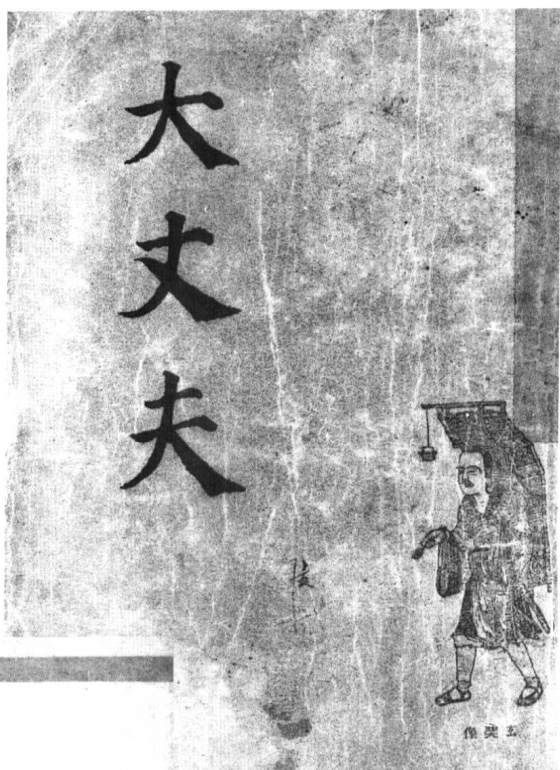 大丈夫
玄奘像